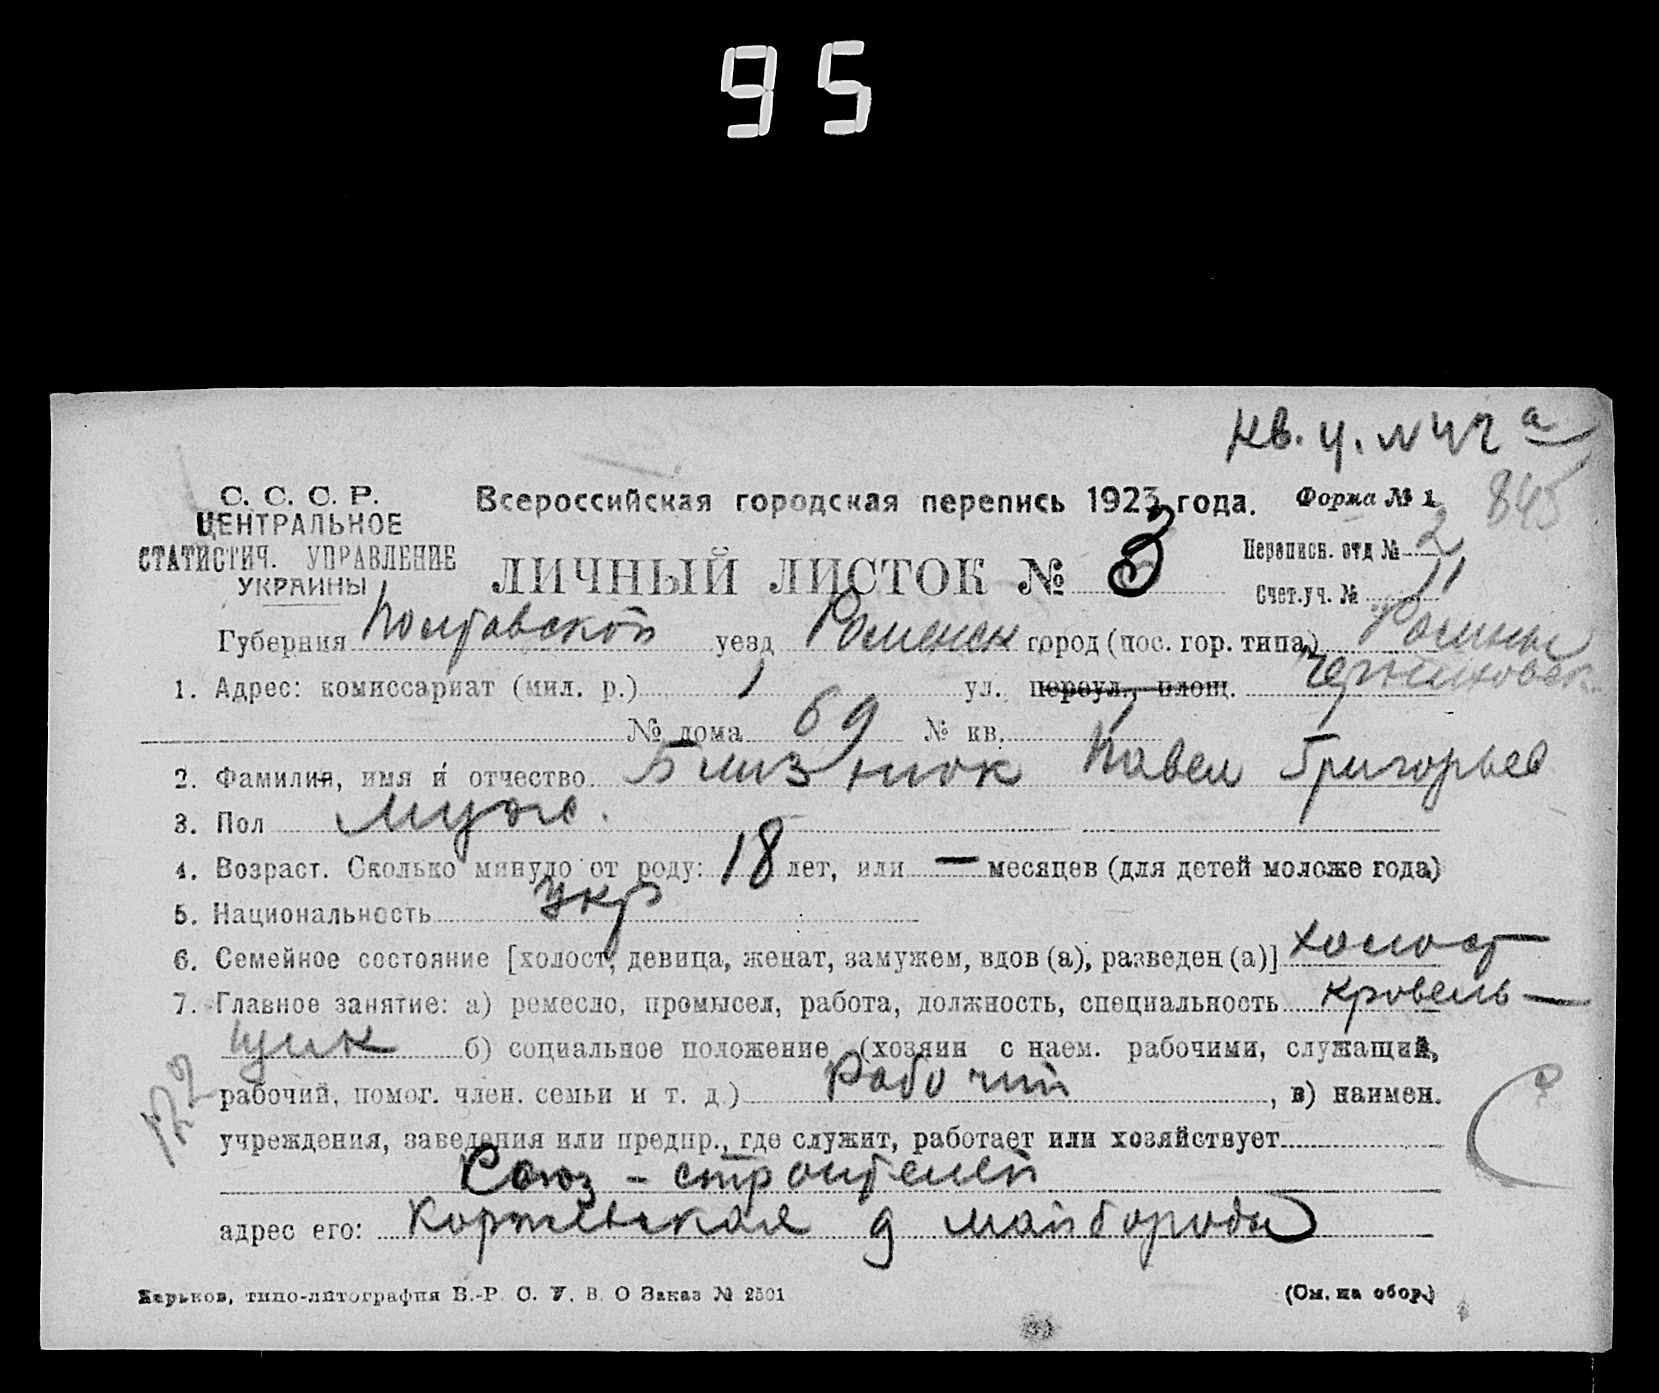 95
кв. у. №442 а
845
С. С. С. Р.
ЦЕНТРАЛЬНОЕ
СТАТИСТИЧ. УПРАВЛЕНИЕ
УКРАИНЫ
Всероссийская городская перепись 1923 года. Форма № 1
ЛИЧНЫЙ ЛИСТОК № 3
Перепись. отд № 2
Счет.уч. № 11
Губерния Полтавской уезд Роменск город (пос. гор. типа) Ромны
1. Адрес: комиссариат (мил. р.) 1 ул. переул., площ. Черниховск.
№ дома 69 № кв. 1
2. Фамилия, имя и отчество Близнюк Павел Григорьев
3. Пол муж.
4. Возраст. Сколько минуло от роду: 18 лет, или — месяцев (для детей моложе года)
5. Национальность Укр
6. Семейное состояние [холост, девица, женат, замужем, вдов (а), разведен (а)] холост
7. Главное занятие: а) ремесло, промысел, работа, должность, специальность кровель—
щик б) социальное положение (хозяин с наем. рабочими, служащий,
рабочий, помог. член. семьи и т. д.) Рабочий, в) наимен.
учреждения, заведения или предпр., где служит, работает или хозяйствует
Союз - строителей
адрес его: Коржевская д майбороды
Харьков, типо-литография В.-Р. С. У. В. О Заказ № 2501
(См. на обор.)